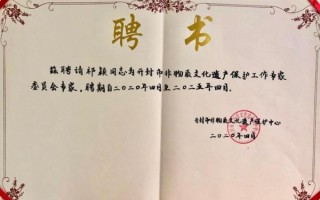 聘书
兹聘请祁颖同志为开封市非物质文化遗产保护工作专家
委员会专家，聘期自二〇二〇年四月至二〇二五年四月。
开封市非物质文化遗产保护中心
二〇二〇年四月